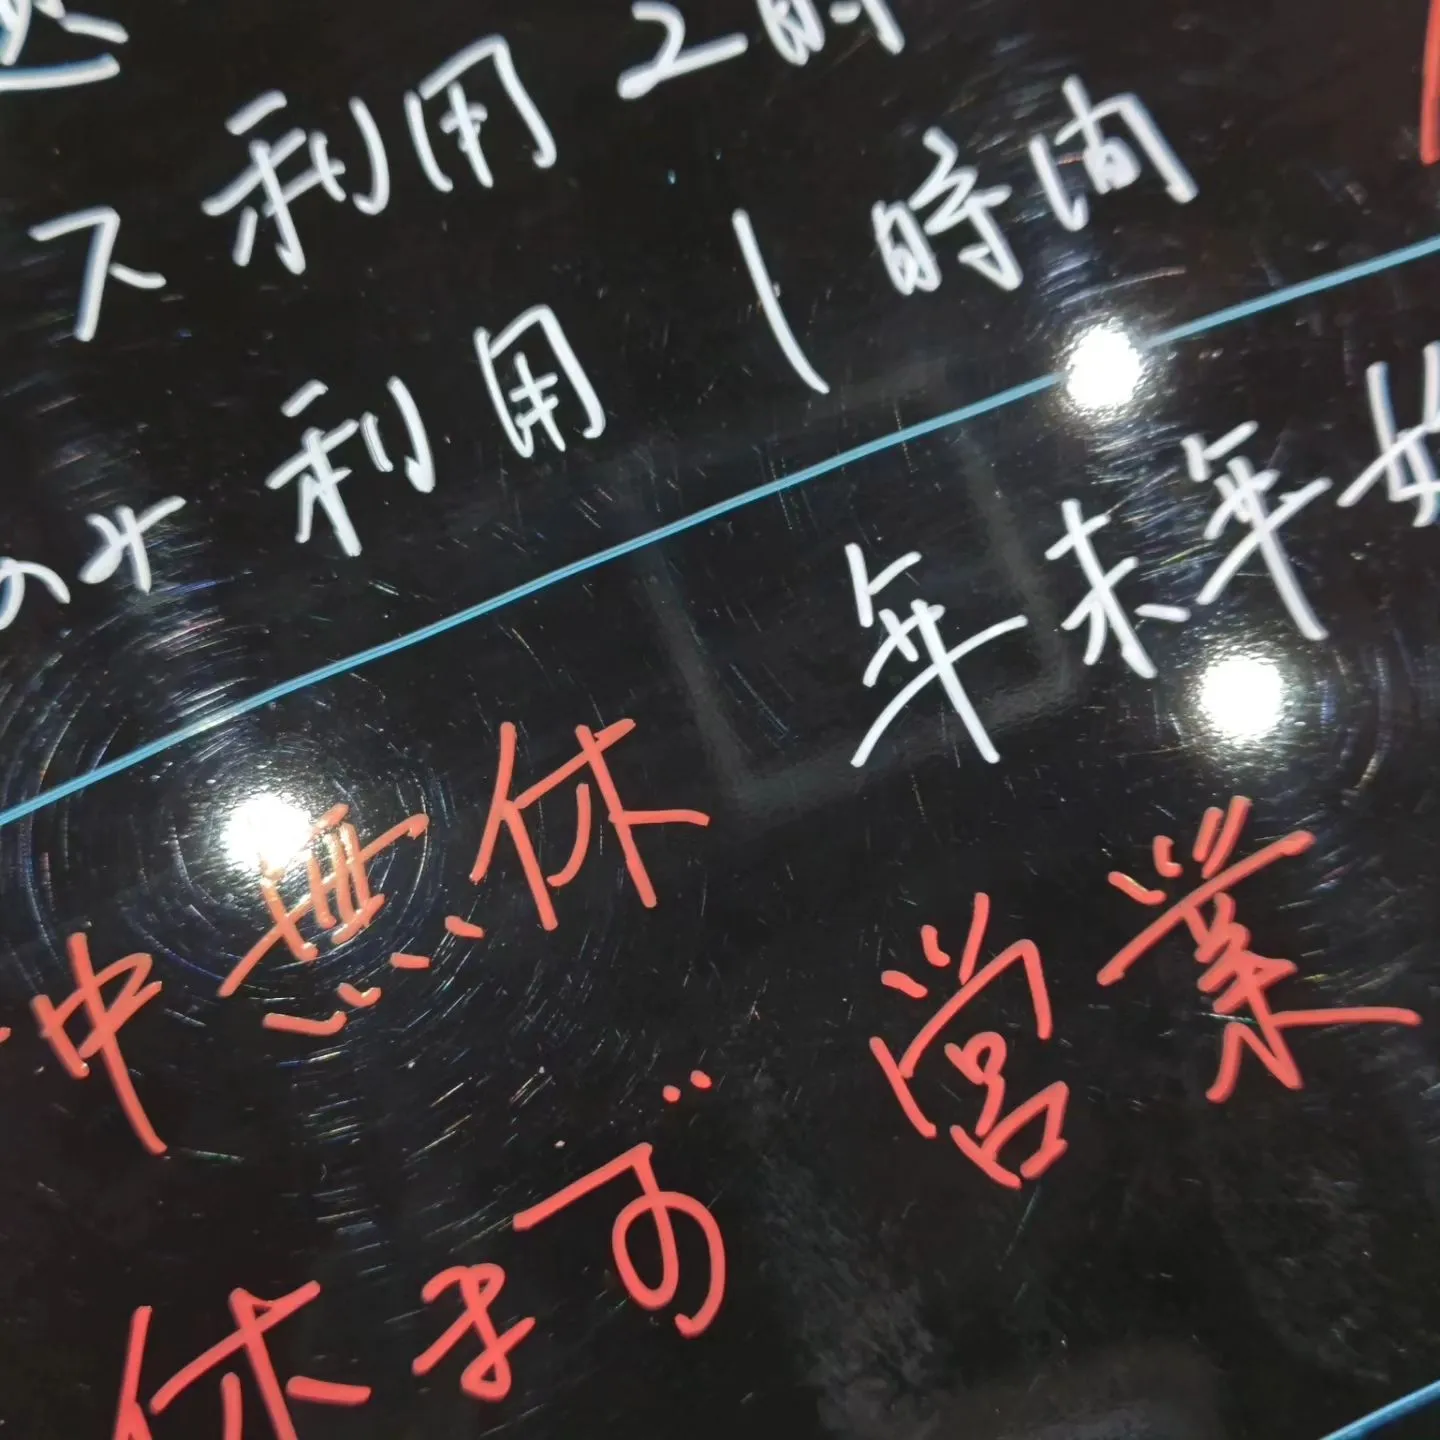 ス利用 2時
のみ利用 1時間
年末年始
中無休 営業
休まず